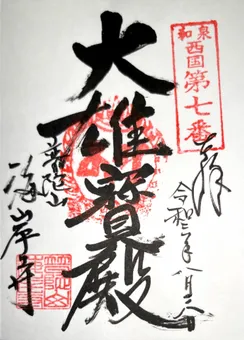 和泉
西国第七番
奉拝
令和三年八月二八日
大雄寳殿
普陀山
海岸寺